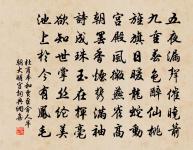 五夜漏聲催曉箭
九重春色醉仙桃
旌旗日暖龍蛇動
宮殿風微燕雀高
朝罷香煙攜滿袖
詩成珠玉在揮毫
欲知世掌絲綸美
池上於今有鳳毛
杜甫奉和賈至舍人早
朝大明宮詞典網集